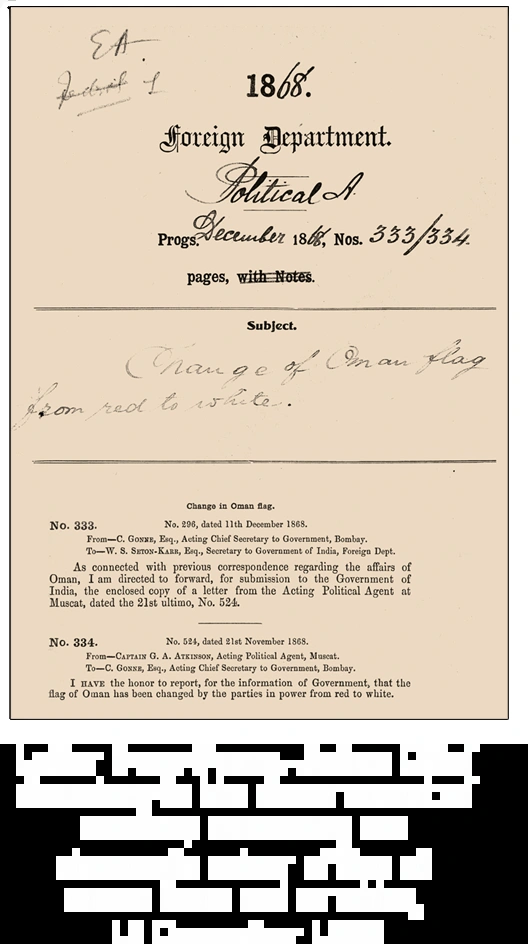 EA
1868.
Foreign Department.
Political A
Progs. December 1868, Nos. 333/334.
pages, with Notes.
Subject.
Change of Oman flag
from red to white.
Change in Oman flag.
No. 333. No. 296, dated 11th December 1868.
From—C. GONNE, Esq., Acting Chief Secretary to Government, Bombay.
To—W. S. SETON-KARR, Esq., Secretary to Government of India, Foreign Dept.
As connected with previous correspondence regarding the affairs of
Oman, I am directed to forward, for submission to the Government of
India, the enclosed copy of a letter from the Acting Political Agent at
Muscat, dated the 21st ultimo, No. 524.
No. 334. No. 524, dated 21st November 1868.
From—CAPTAIN G. A. ATKINSON, Acting Political Agent, Muscat.
To—C. GONNE, Esq., Acting Chief Secretary to Government, Bombay.
I HAVE the honor to report, for the information of Government, that the
flag of Oman has been changed by the parties in power from red to white.